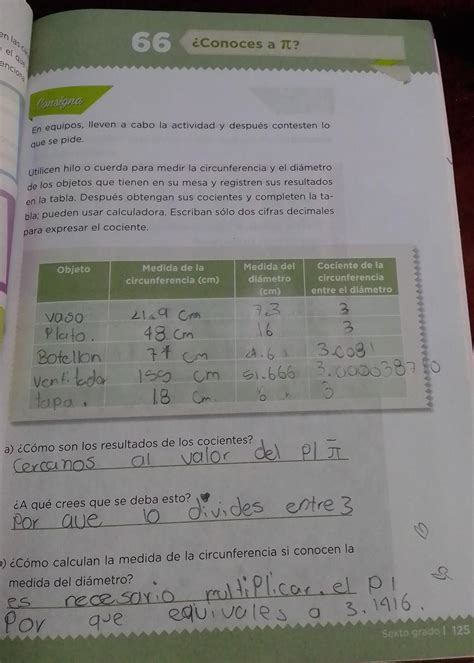 en las ca
el que
encion
66 ¿Conoces a π?
Consigna
En equipos, lleven a cabo la actividad y después contesten lo
que se pide.
Utilicen hilo o cuerda para medir la circunferencia y el diámetro
de los objetos que tienen en su mesa y registren sus resultados
en la tabla. Después obtengan sus cocientes y completen la ta-
bla; pueden usar calculadora. Escriban sólo dos cifras decimales
para expresar el cociente.
Objeto Medida de la circunferencia (cm) Medida del diámetro (cm) Cociente de la circunferencia entre el diámetro
vaso 21.9 cm 7.3 3
Plato. 48 cm 16 3
Botellon cm 3.0081
ventilador 155 cm 51.666
tapa. 18 cm 6 3
a) ¿Cómo son los resultados de los cocientes?
Cercanos al valor del PI π
¿A qué crees que se deba esto?
Por que lo divides entre 3
¿Cómo calculan la medida de la circunferencia si conocen la
medida del diámetro?
es necesario multiplicar. el PI
Por que equivales a 3.1416.
Sexto grado | 125